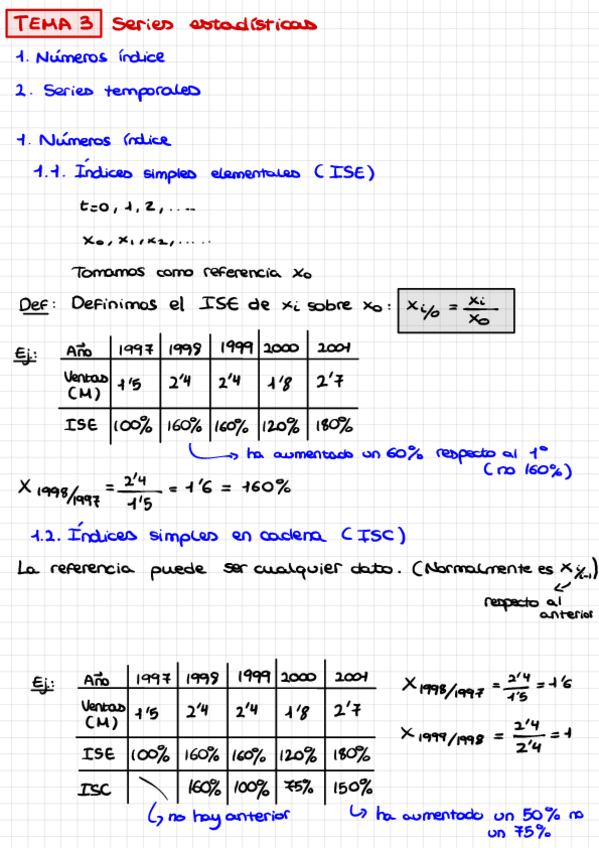 TEMA 3 Series estadísticas
1. Números índice
2. Series temporales
1. Números índice
1.1. Índices simples elementales (ISE)
t=0, 1, 2, ....
x₀, x₁, x₂, .....
Tomamos como referencia x₀
Def: Definimos el ISE de xᵢ sobre x₀: X i/0 = xᵢ/x₀
Ej: Año 1997 1998 1999 2000 2001
Ventas (M) 1'5 2'4 2'4 1'8 2'7
ISE 100% 160% 160% 120% 180%
ha aumentado un 60% respecto al 1º
(no 160%)
X 1998/1997 = 2'4/1'5 = 1'6 = 160%
1.2. Índices simples en cadena (ISC)
La referencia puede ser cualquier dato. (Normalmente es x i/i-1)
respecto al
anterior
Ej: Año 1997 1998 1999 2000 2001
Ventas (M) 1'5 2'4 2'4 1'8 2'7
ISE 100% 160% 160% 120% 180%
ISC 160% 100% 75% 150%
X 1998/1997 = 2'4/1'5 = 1'6
X 1999/1998 = 2'4/2'4 = 1
no hay anterior
ha aumentado un 50% no
un 75%